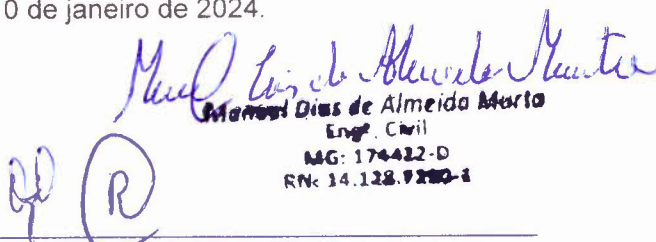 0 de janeiro de 2024.
Manuel Dias de Almeida Marta
Engº. Civil
MG: 174422-D
RN: 14.128.
R